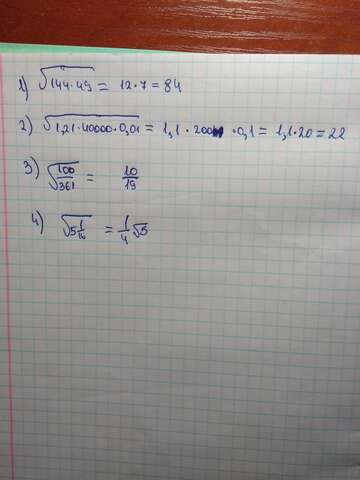 1) √144·49 = 12·7 = 84
2) √1,21·40000·0,01 = 1,1·200 ·0,1 = 1,1·20 = 22
3) √100/361 = 10/19
4) √5 1/16 = 1/4 √5